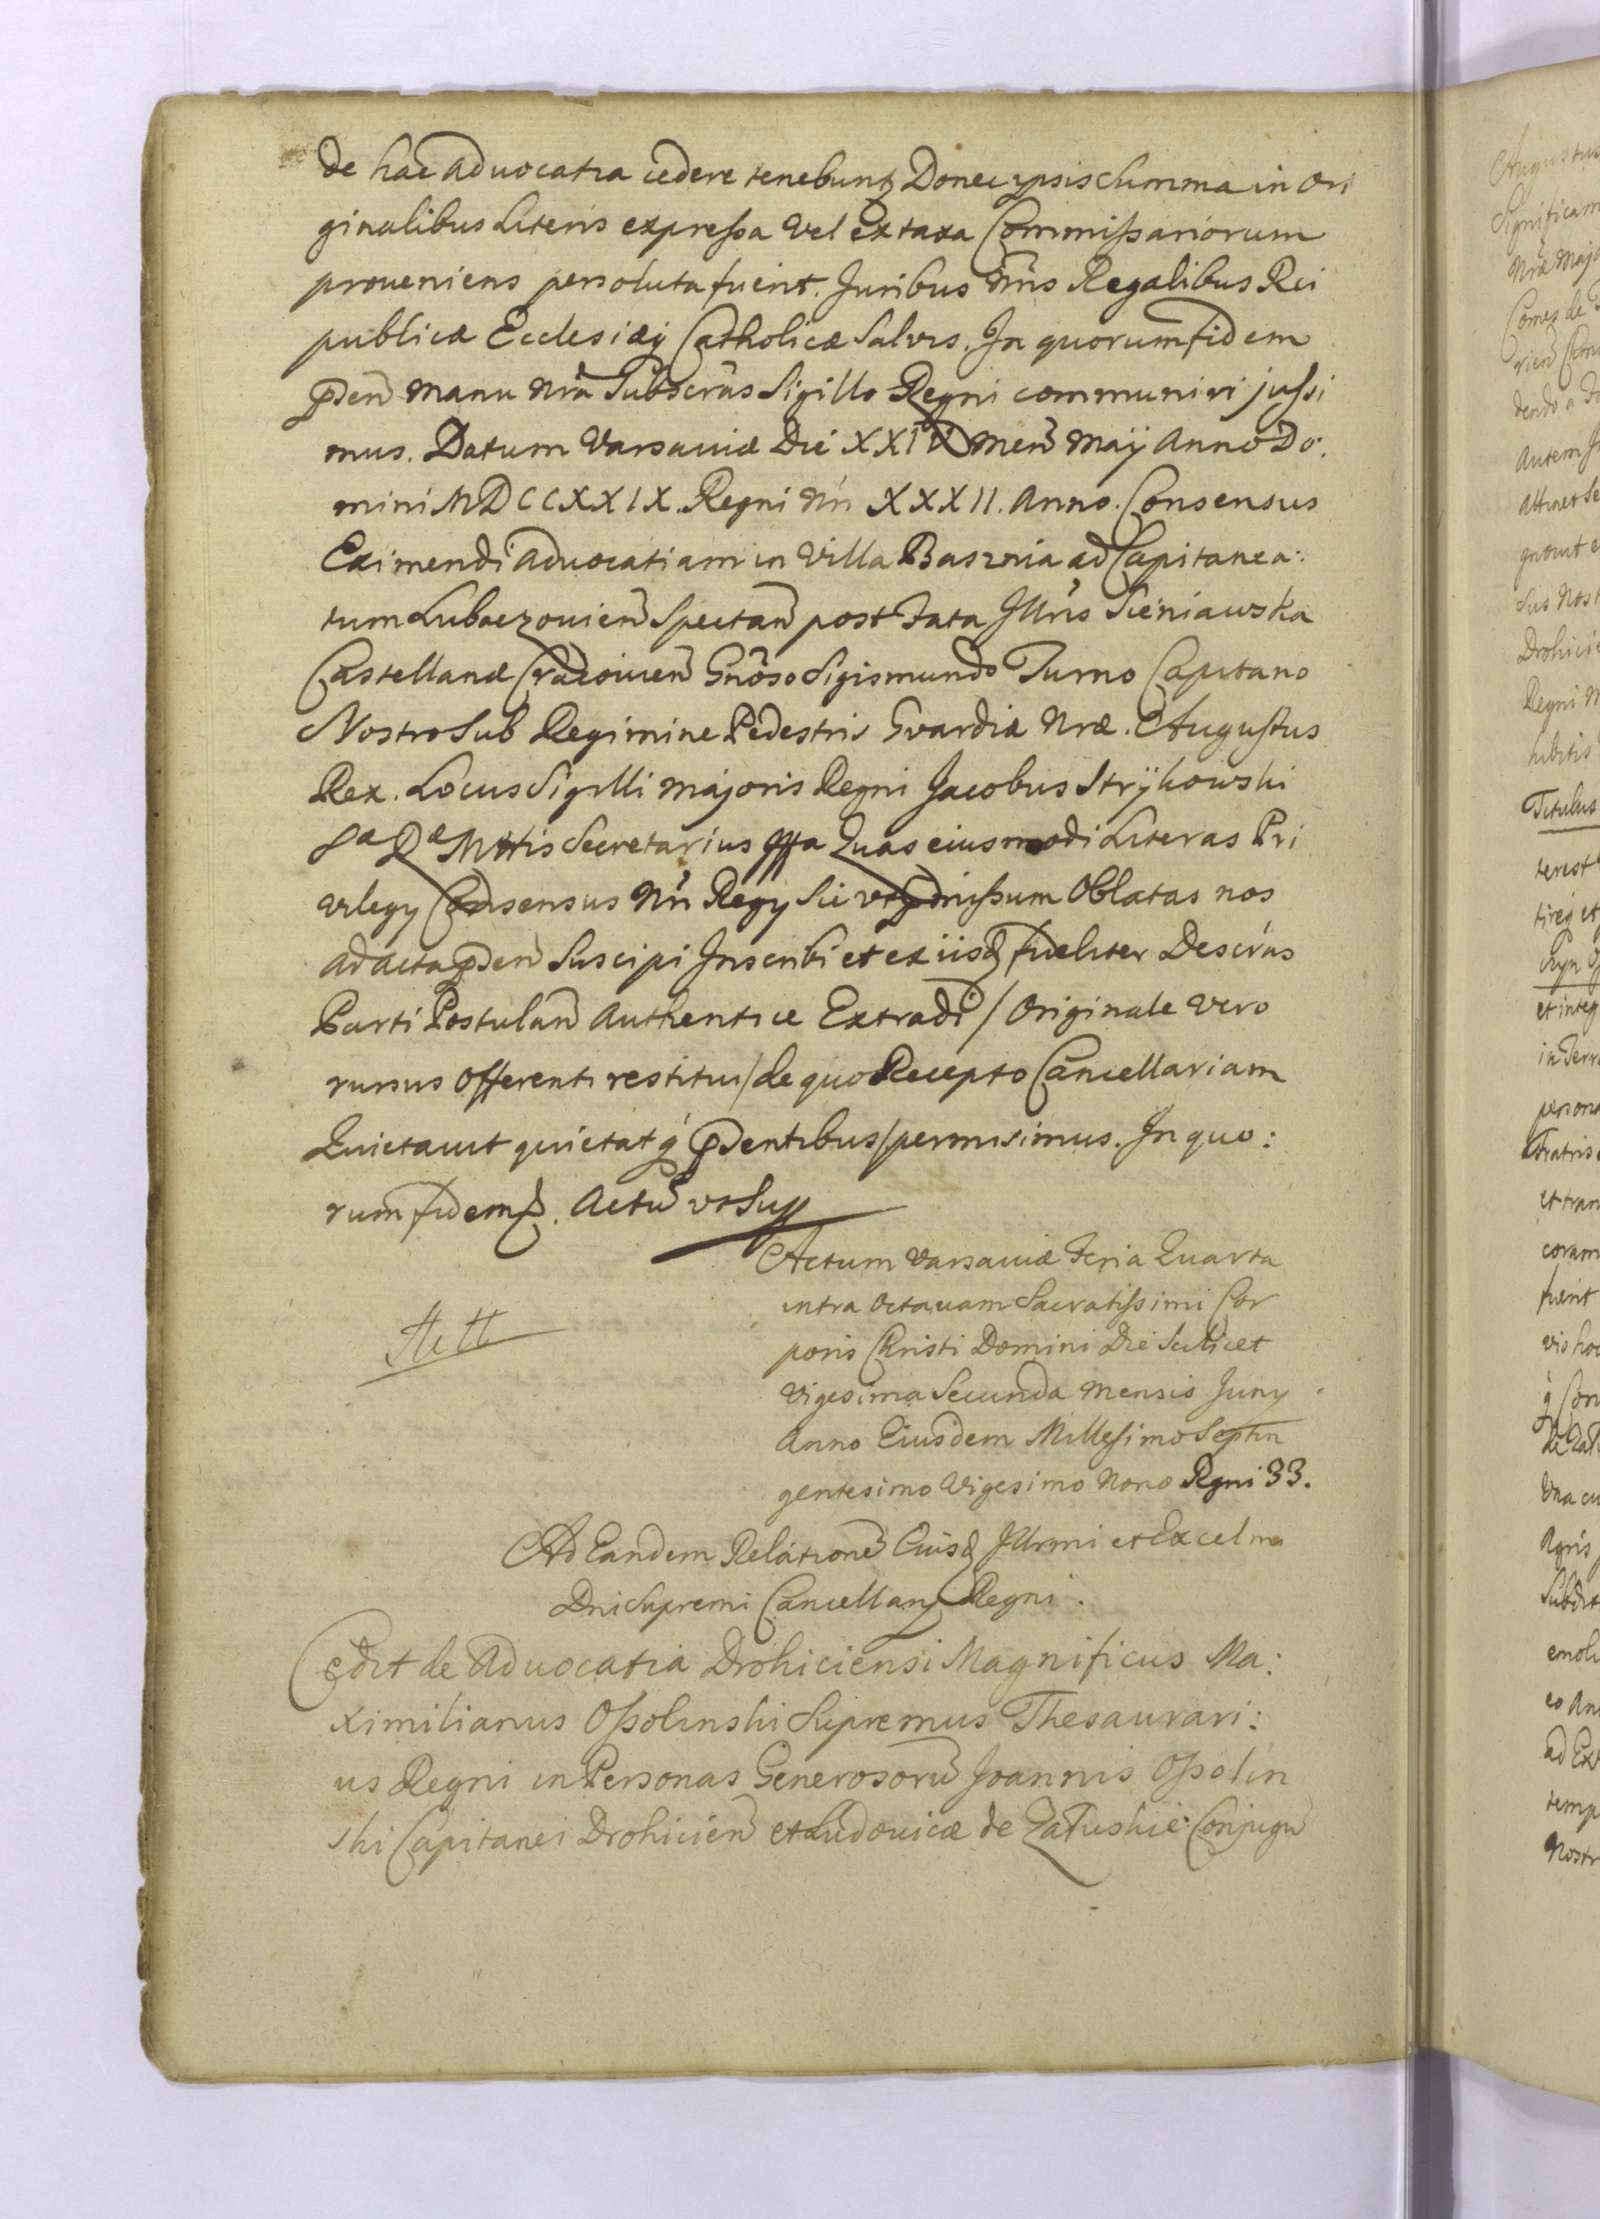 de hac advocatia cedere tenebunt Donec ipsis summa in Ori
ginalibus Literis expressa vel ex taxa Commissariorum
proveniens persoluta fuerit. Juribus nris Regalibus Rei
publicæ Ecclesiæq Catholicæ Salvis. In quorum fidem
pden manu nra Subscras Sigillo Regni communiri jussi
mus. Datum Varsaviæ Die XXIV men Maÿ Anno Do:
mini MDCCXXIX. Regni nri XXXII. Anno. Consensus
Eximendi advocatiam in Villa Basznia ad Capitanea:
tum Lubaczovien Spectan post Fata Illris Sieniawska
Castellanæ Cracovien Gnoso Sigismundo Turno Capitano
Nostro Sub Regimine Pedestris Gvardiæ Nræ. Augustus
Rex. Locus Sigilli majoris Regni Jacobus Strÿkowski
Sæ Ræ Mttis Secretarius Quas eiusmodi Literas Pri
vilegy Consensus Nri Regy Sic vt Oblatas nos
ad acta pden Suscipi Inscribi et ex iisq fideliter Descras
Parti Postulan Authentice Extradi / Originale vero
rursus Offerenti restitui / de quo Recepto Cancellariam
Quietavit quietatq pdentibus / permisimus. In quo:
rum fidem. Actu vt Sup
Actum Varsaviæ Feria Quarta
intra Octavam Sacratissimi Cor
poris Christi Domini Die Scilicet
Vigesima Secunda Mensis Juny
Anno Eiusdem Millesimo Septin
gentesimo Vigesimo Nono Regni 33.
Ad Eandem Relatione Eiusq Illrmi et Excelmi
Dni Supremi Cancellarij Regni.
Cedit de Advocatia Drohiciensi Magnificus Ma:
ximilianus Ossolinski Supremus Thesaurari:
us Regni in Personas Generosoru Joannis Ossolin
ski Capitanei Drohicien et Ludovicæ de Załuskie Conjugu